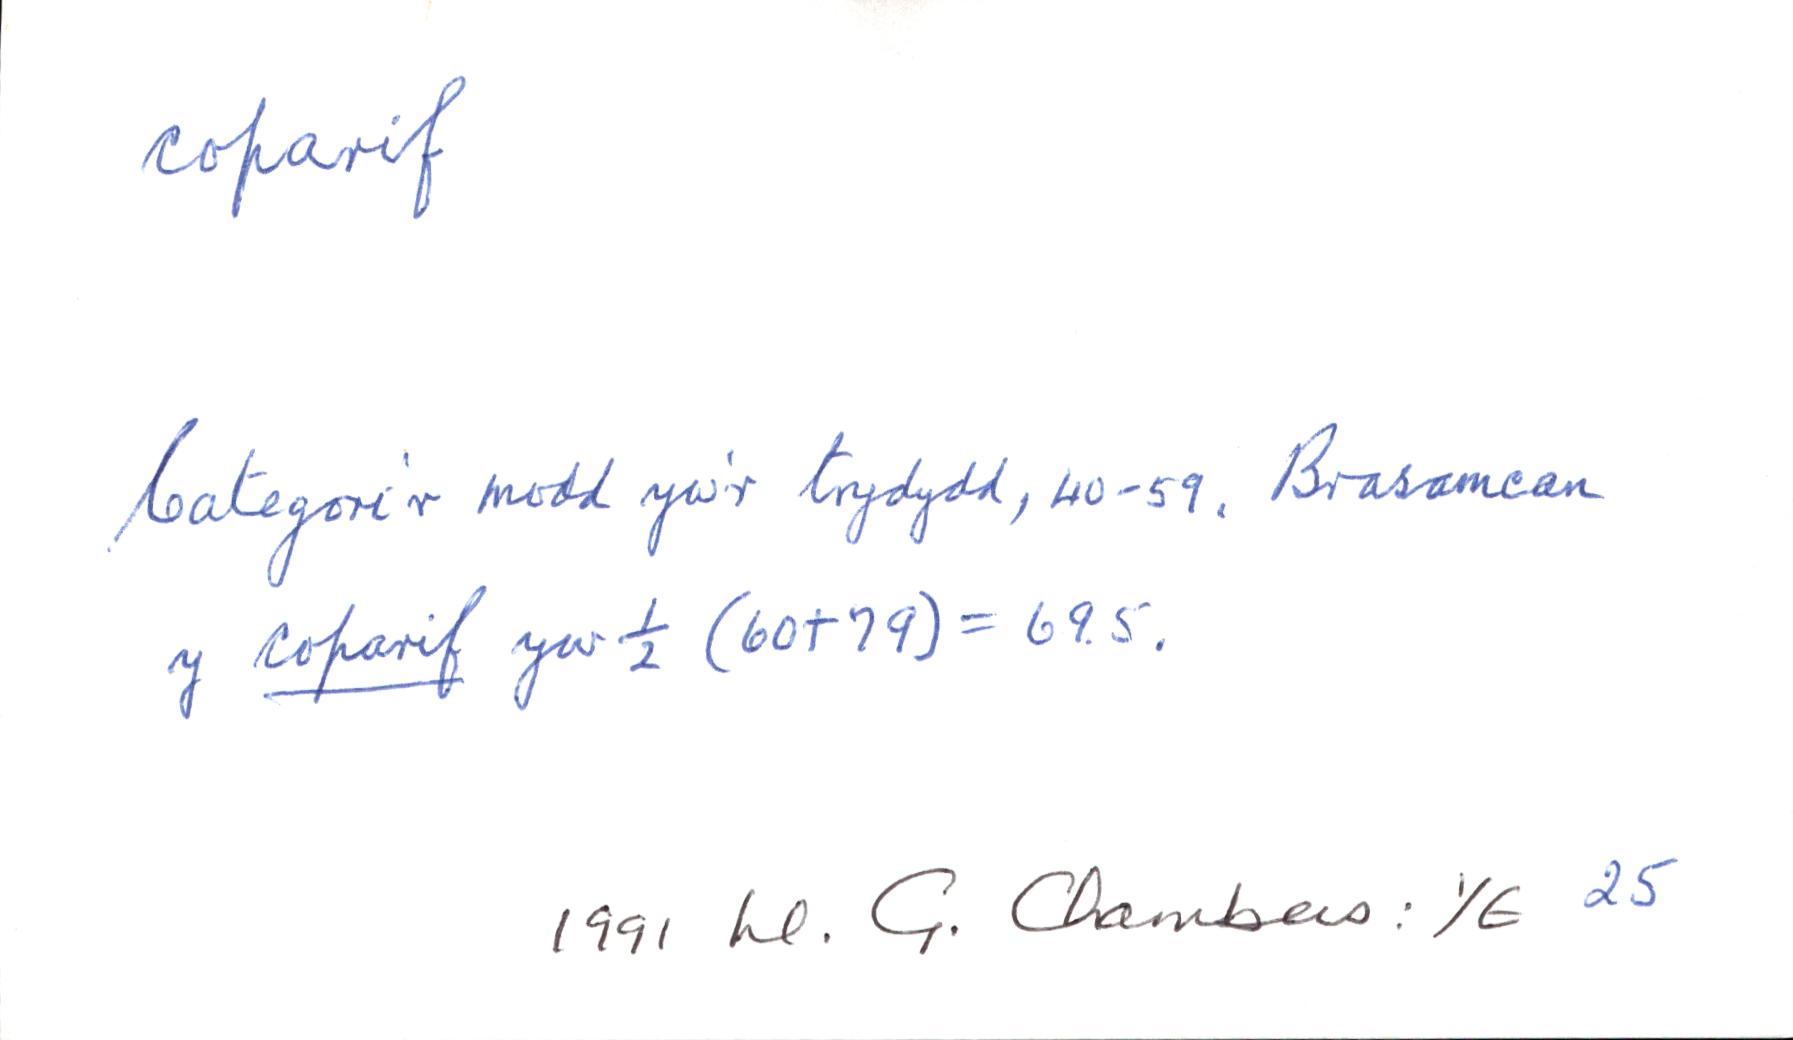 coparif
Categori'r modd yw'r trydydd, 40-59. Brasamcan
y coparif yw ½ (60+79) = 69.5.
1991 Ll. G. Chambers: YE 25